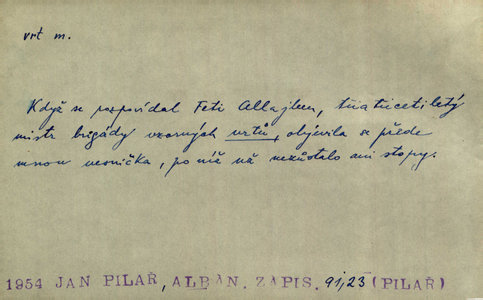 vrt m.
Když se rozpovídal Feti Allajben, třiatřicetiletý
mistr brigády vzorných vrtů, objevila se přede
mnou vesnička, po níž už nezůstalo ani stopy.
1954 JAN PILAŘ, ALBÁN. ZÁPIS. 91,23 (PILAŘ)